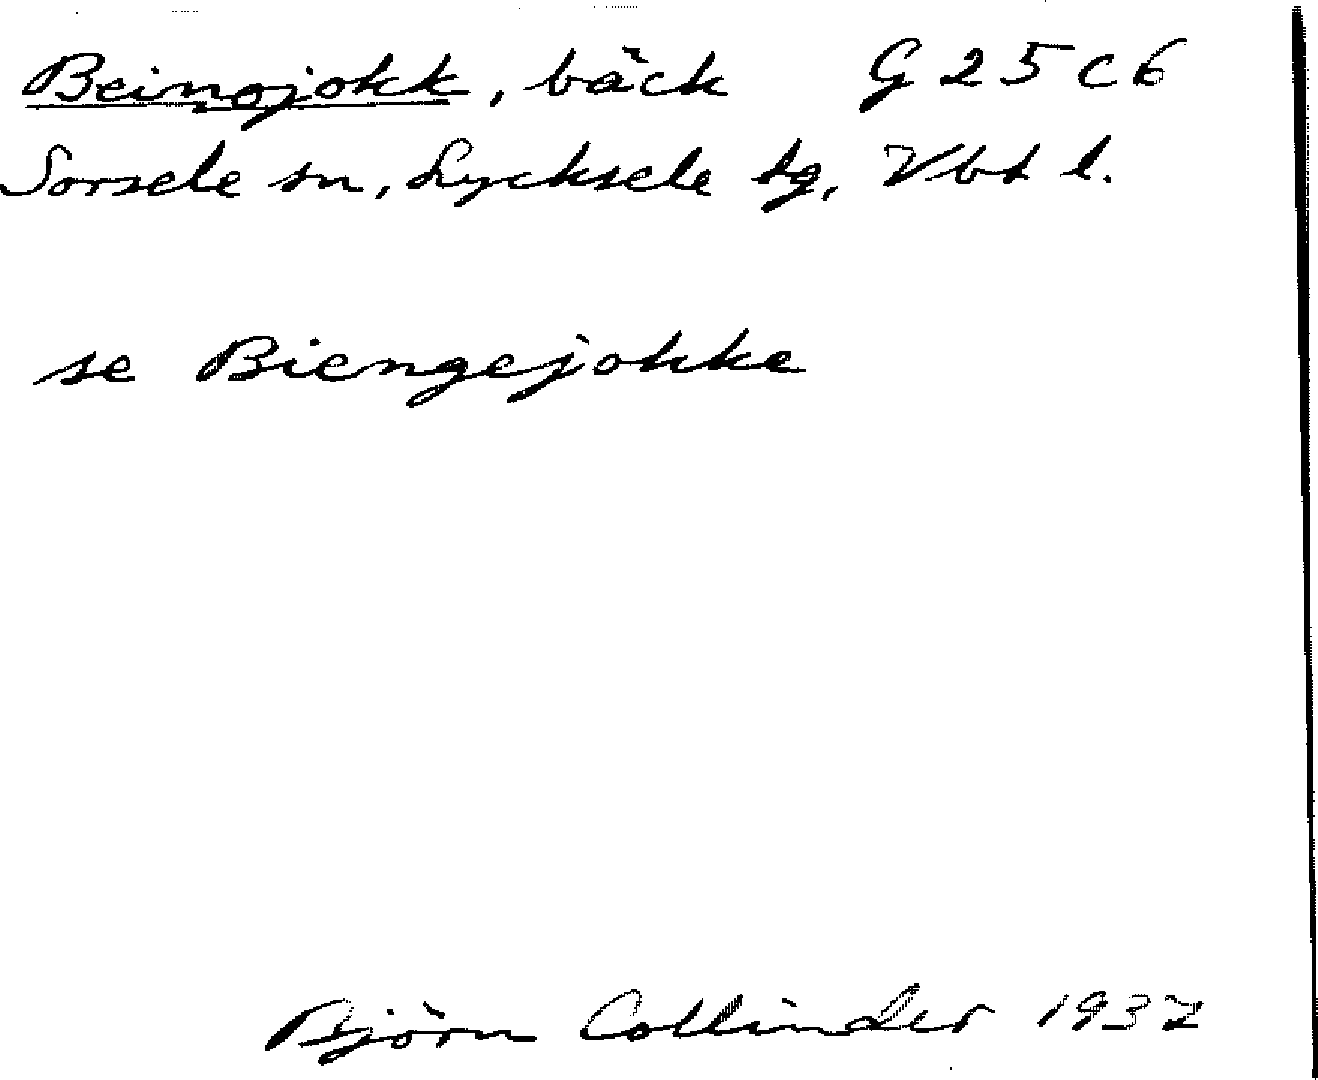 Beinojokk, bäck G 25 C 6
Sorsele sn, Lycksele tg, Vbt l.
se Biengejokke
Björn Collinder 1937